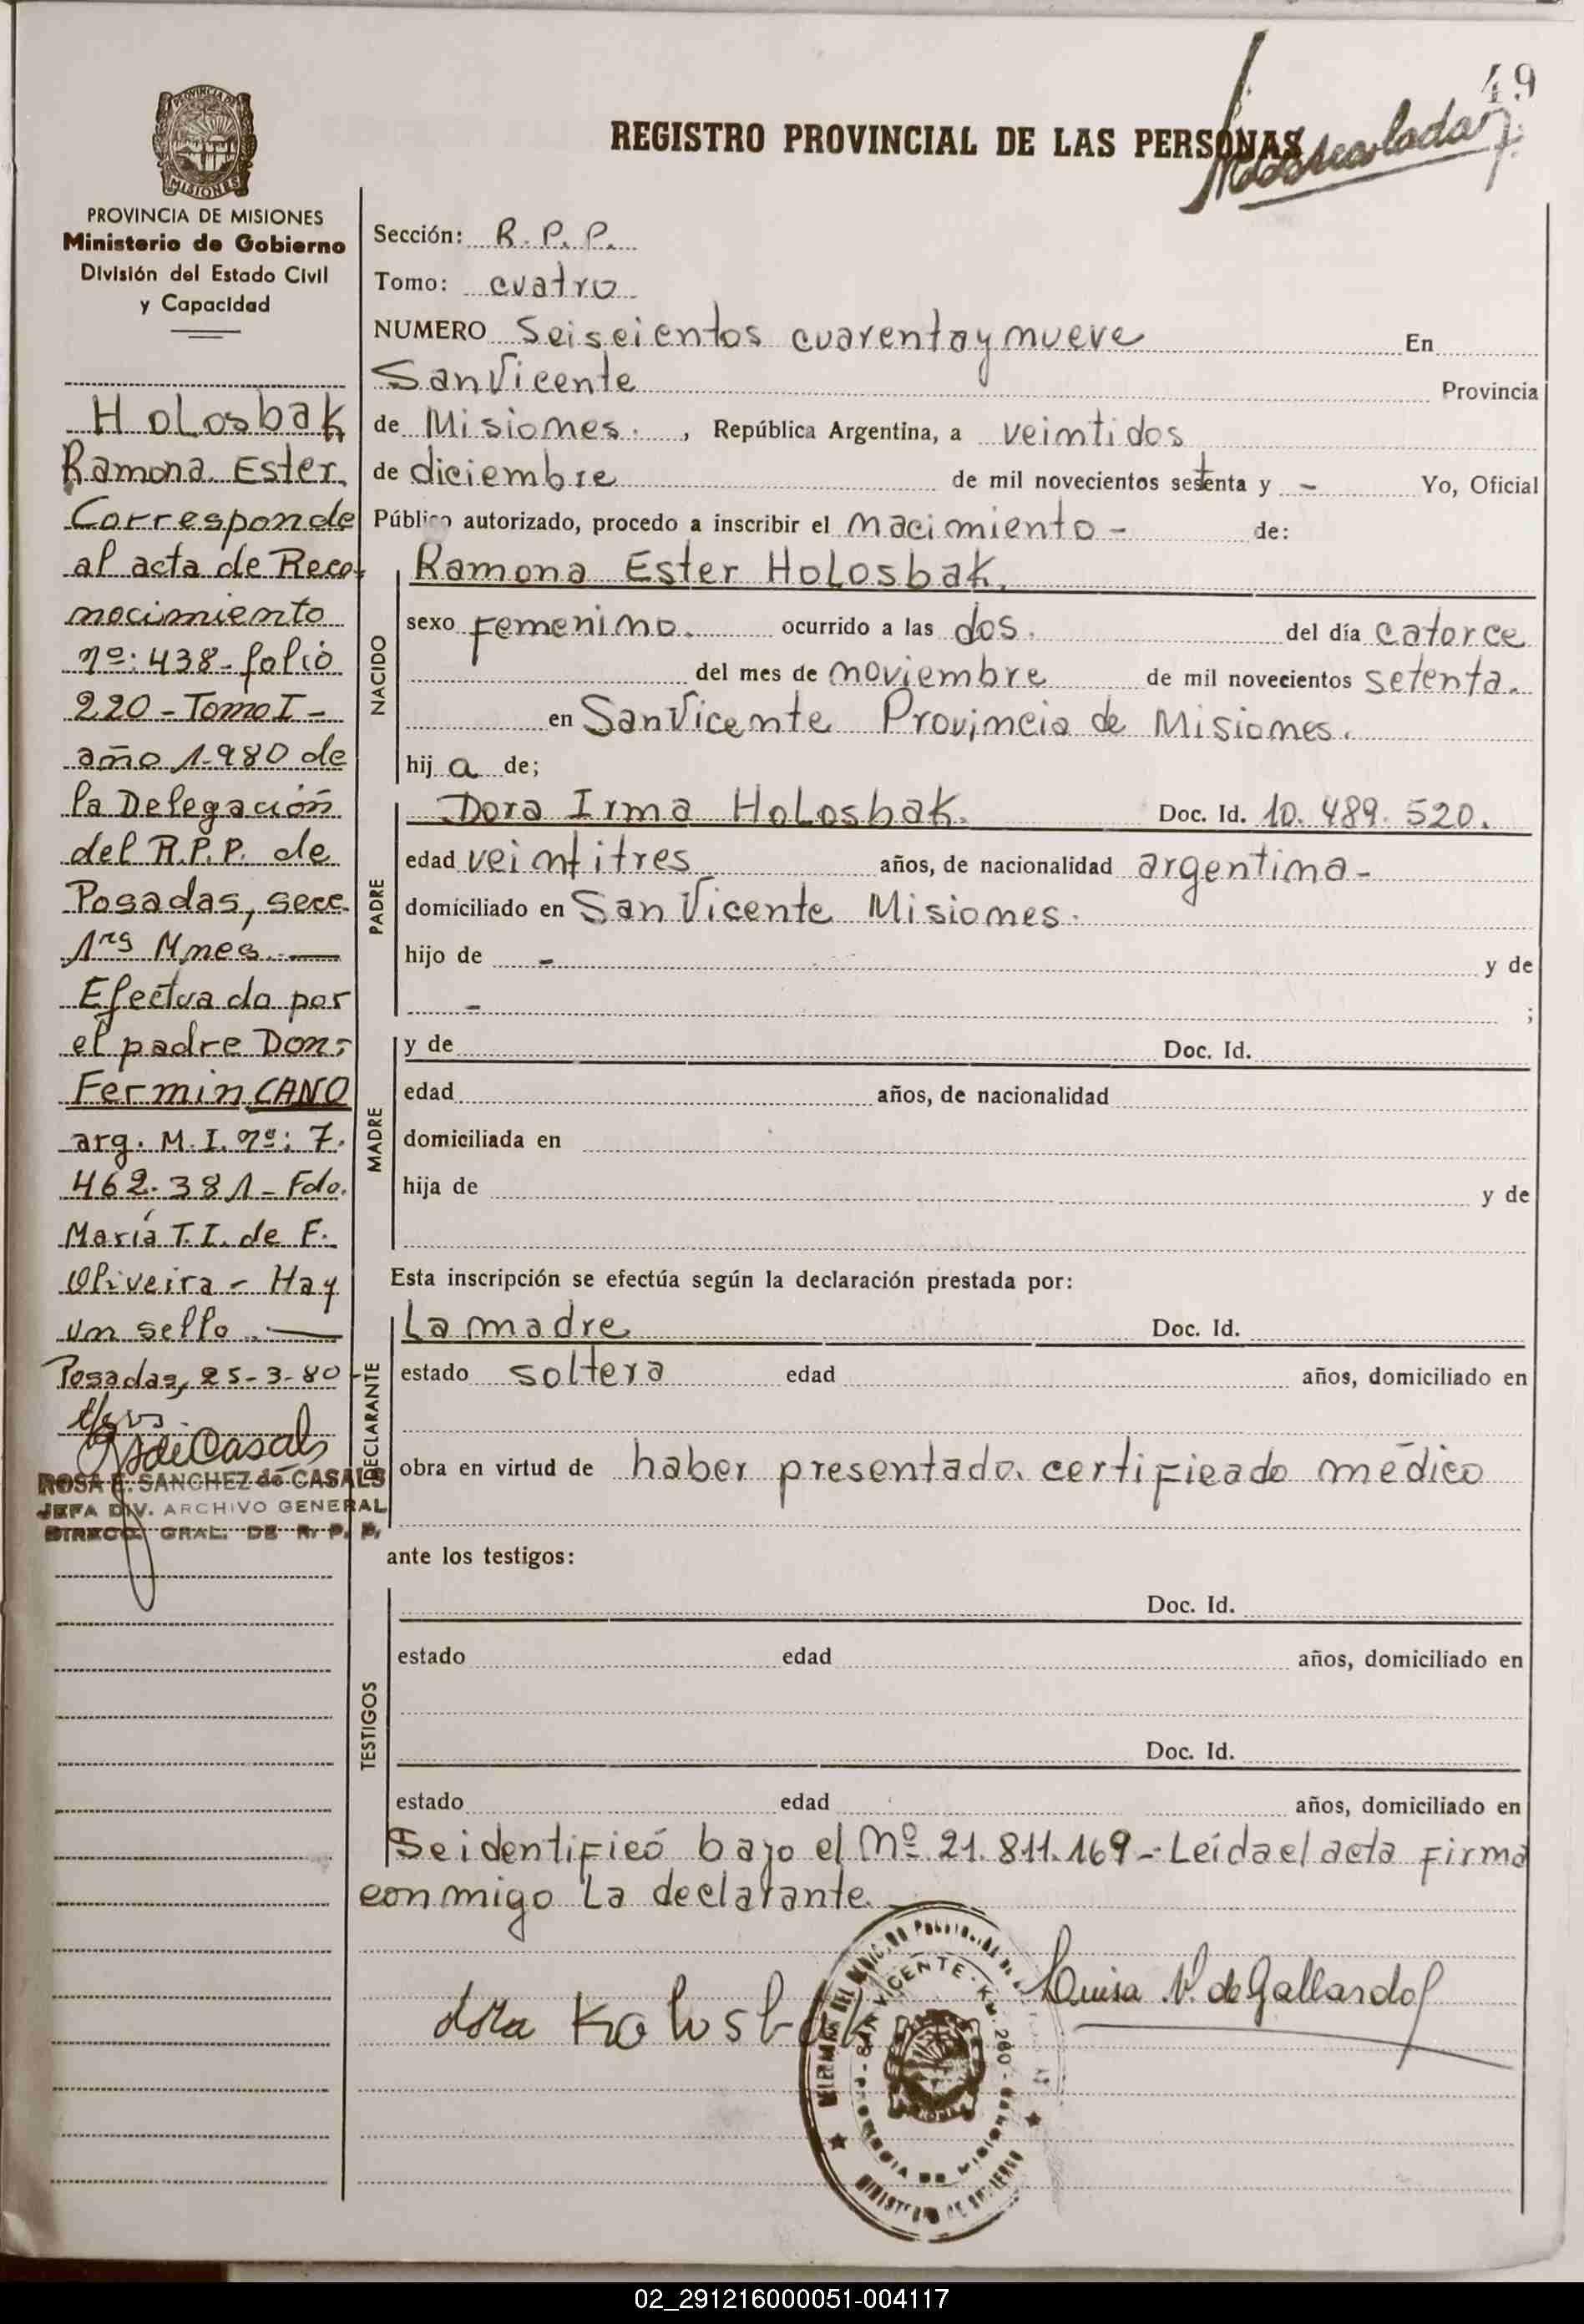 49
REGISTRO PROVINCIAL DE LAS PERSONAS
PROVINCIA DE
MISIONES
PROVINCIA DE MISIONES
Ministerio de Gobierno
División del Estado Civil
y Capacidad
Holosbak
Ramona Ester.
Corresponde
al acta de Reco-
nocimiento
nº: 438-folio
220-Tomo I-
año 1.980 de
la Delegación
del R.P.P. de
Posadas, secc.
1ra Mnes.—
Efectuado por
el padre Don:
Fermin CANO
arg. M.I. nº: 7.
462.381-Fdo.
María T.I. de F.
Oliveira - Hay
un sello.—
Posadas, 25-3-80-
de Casals
ROSA E. SANCHEZ de CASALS
JEFA DIV. ARCHIVO GENERAL
DIRECC. GRAL. DE R. P. P.
Sección: R. P. P.
Tomo: cuatro
NUMERO Seiscientos cuarenta y nueve En
San Vicente Provincia
de Misiones. , República Argentina, a veintidos
de diciembre de mil novecientos setenta y - Yo, Oficial
Público autorizado, procedo a inscribir el nacimiento - de:
NACIDO
Ramona Ester Holosbak.
sexo femenino. ocurrido a las dos. del día catorce
del mes de noviembre de mil novecientos setenta.
en San Vicente Provincia de Misiones.
hij a de;
PADRE
Dora Irma Holosbak. Doc. Id. 10.489.520.
edad veintitres años, de nacionalidad argentina-
domiciliado en San Vicente Misiones.
hijo de - y de
- ;
MADRE
y de Doc. Id.
edad años, de nacionalidad
domiciliada en
hija de y de
Esta inscripción se efectúa según la declaración prestada por:
DECLARANTE
La madre Doc. Id.
estado soltera edad años, domiciliado en
obra en virtud de haber presentado certificado médico
ante los testigos:
TESTIGOS
Doc. Id.
estado edad años, domiciliado en
Doc. Id.
estado edad años, domiciliado en
Se identificó bajo el Nº 21.811.169-Leída el acta firma
conmigo La declarante.
Luisa V. de Gallardo
SAN VICENTE - KM. 280
PROVINCIA DE MISIONES
MINISTERIO DE GOBIERNO
02_291216000051-004117